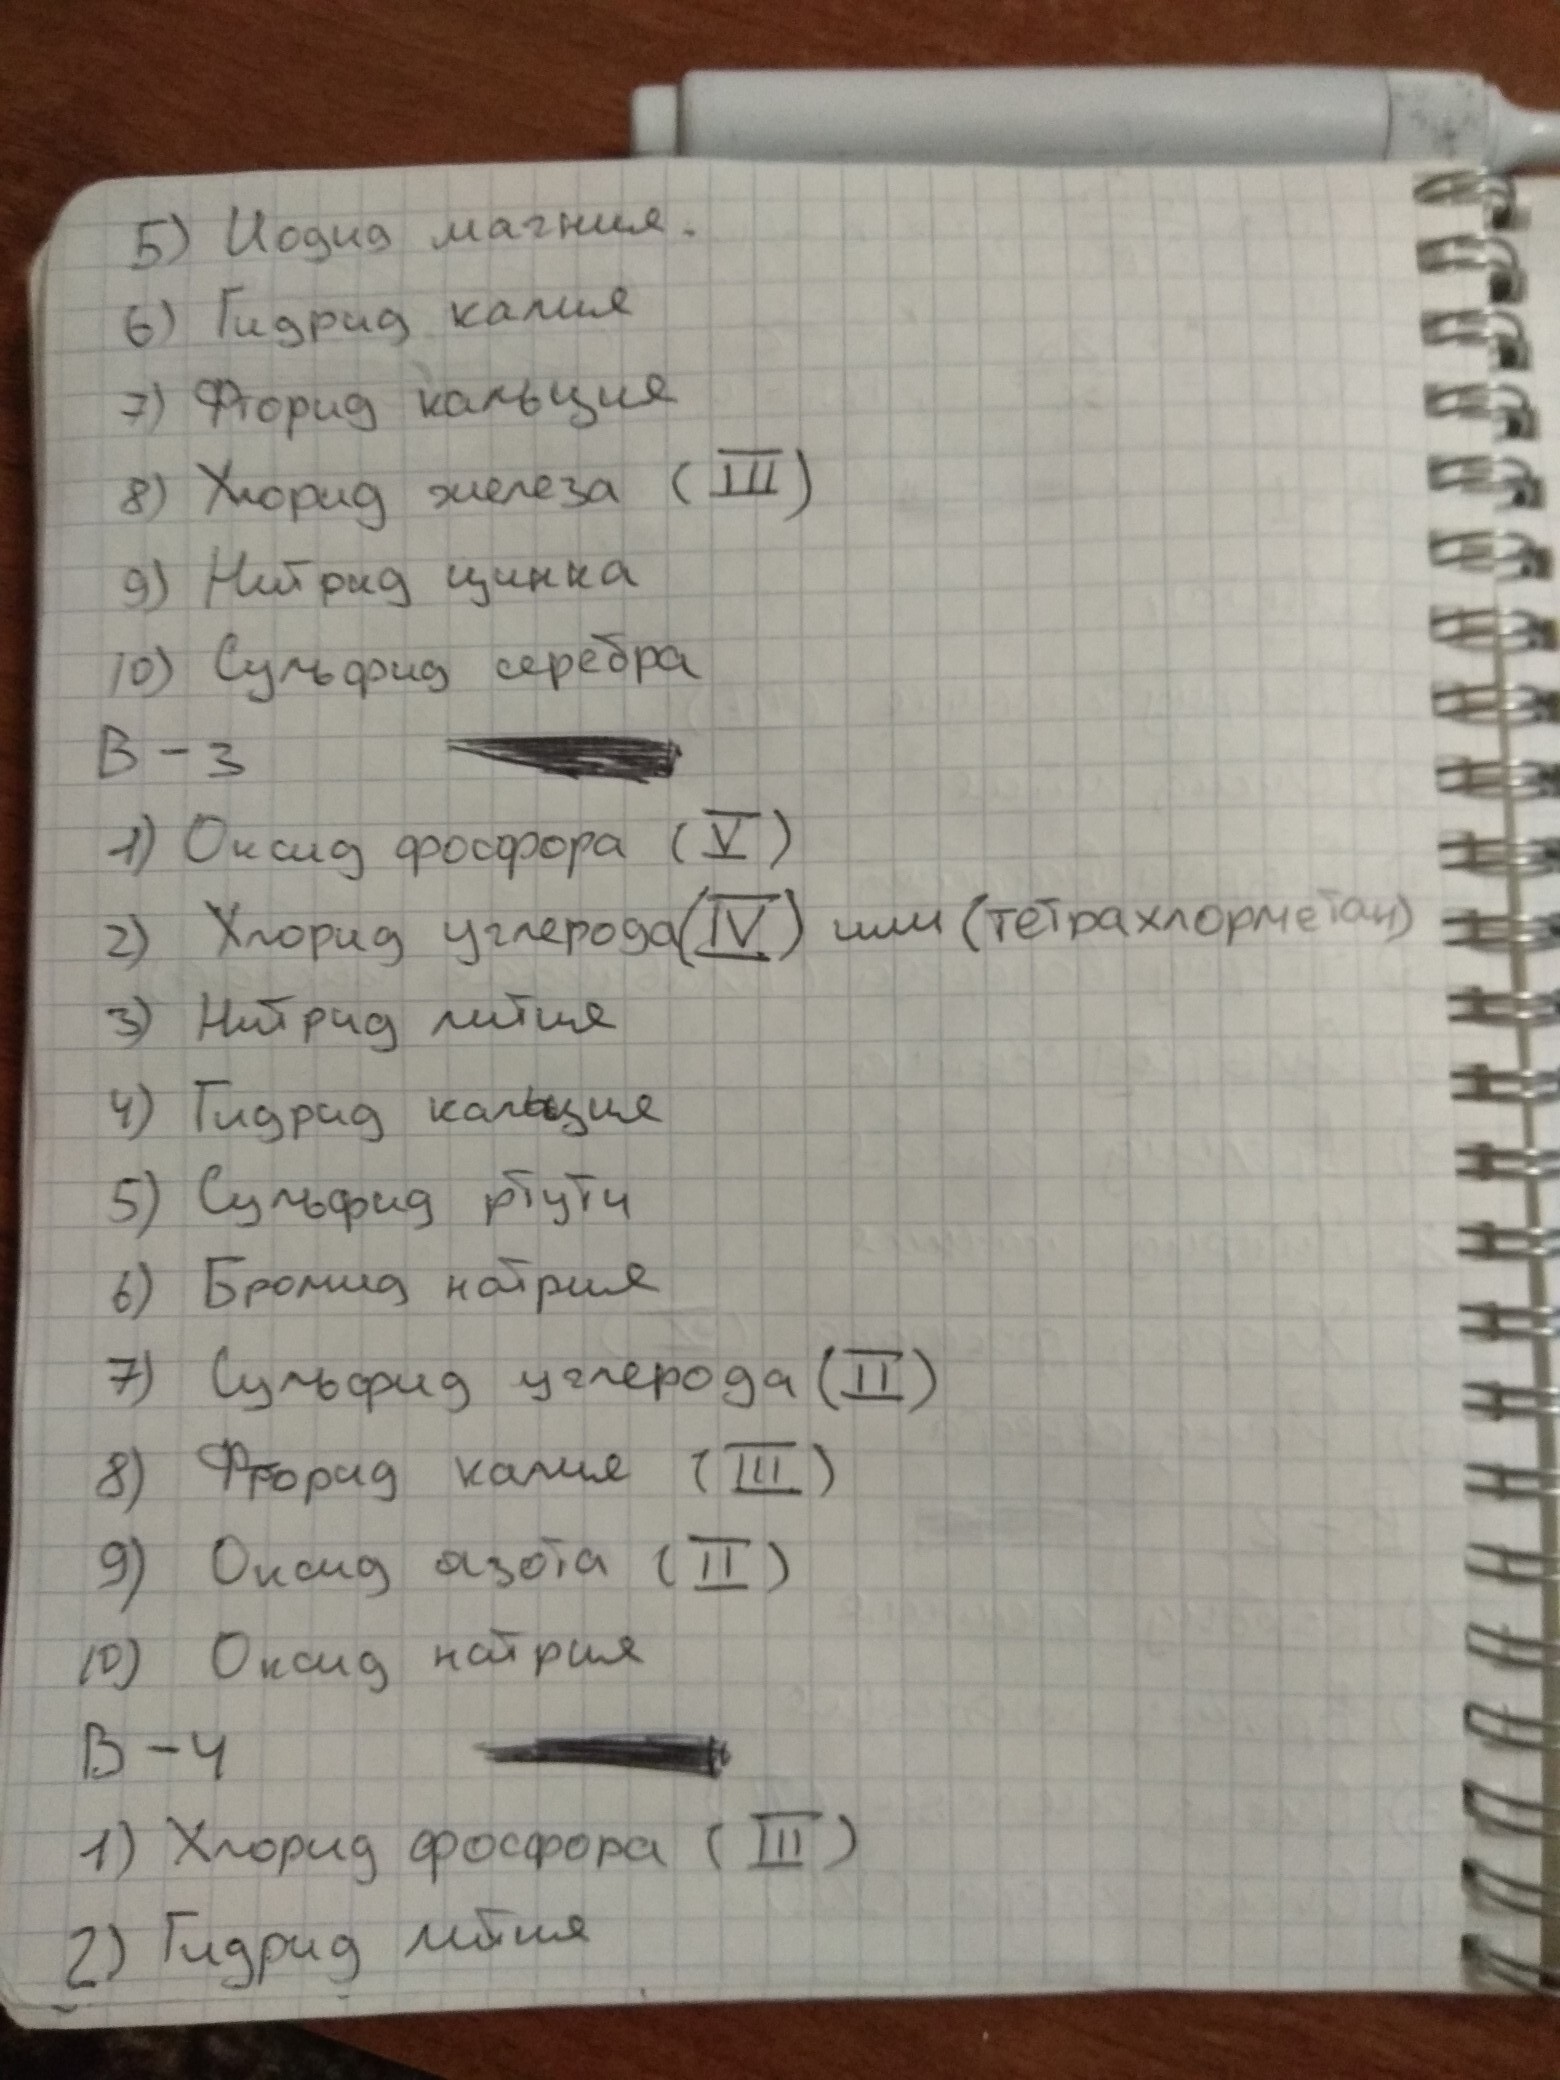 5) Иодид магния.
6) Гидрид калия
7) Фторид кальция
8) Хлорид железа (III)
9) Нитрид цинка
10) Сульфид серебра
В-3
1) Оксид фосфора (V)
2) Хлорид углерода (IV) или (тетрахлорметан)
3) Нитрид лития
4) Гидрид кальция
5) Сульфид ртути
6) Бромид натрия
7) Сульфид углерода (II)
8) Фторид калия (III)
9) Оксид азота (II)
10) Оксид натрия
В-4
1) Хлорид фосфора (III)
2) Гидрид лития